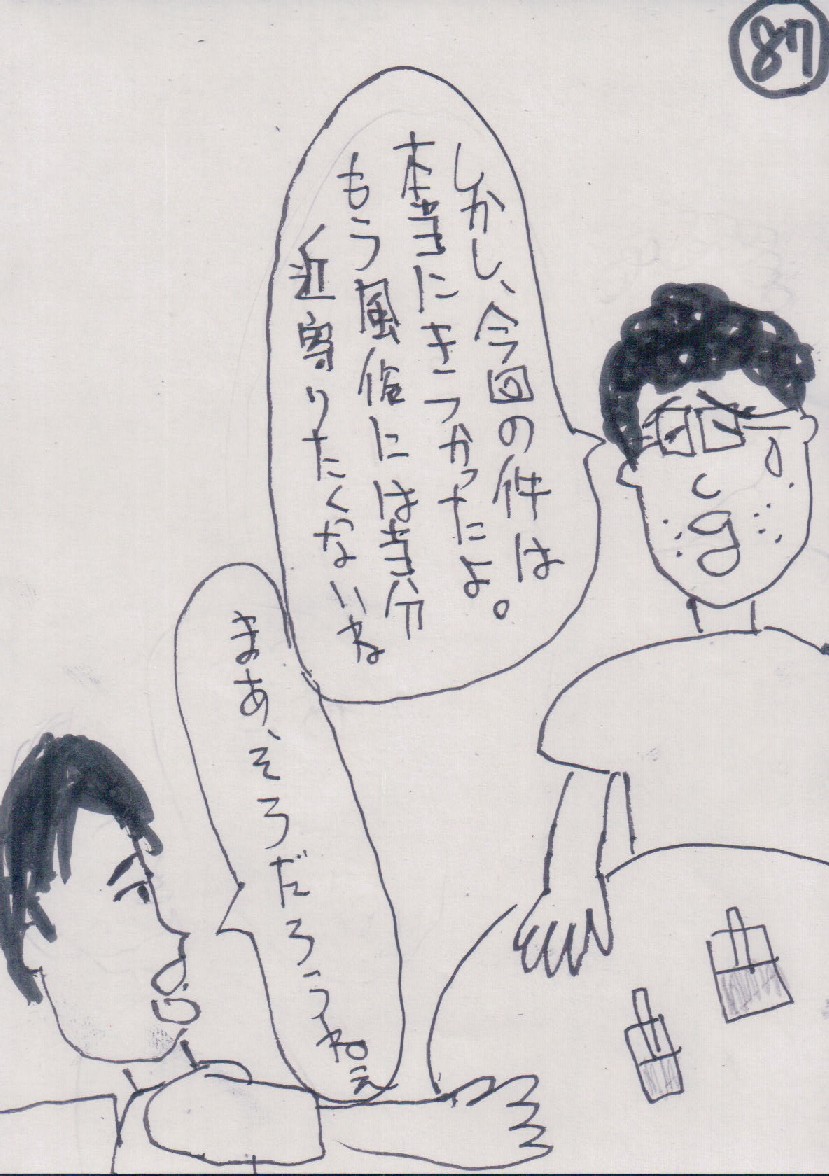 87
しかし、今回の件は
本当にきつかったよ。
もう風俗には当分
近寄りたくないね
まあ、そうだろうねえ